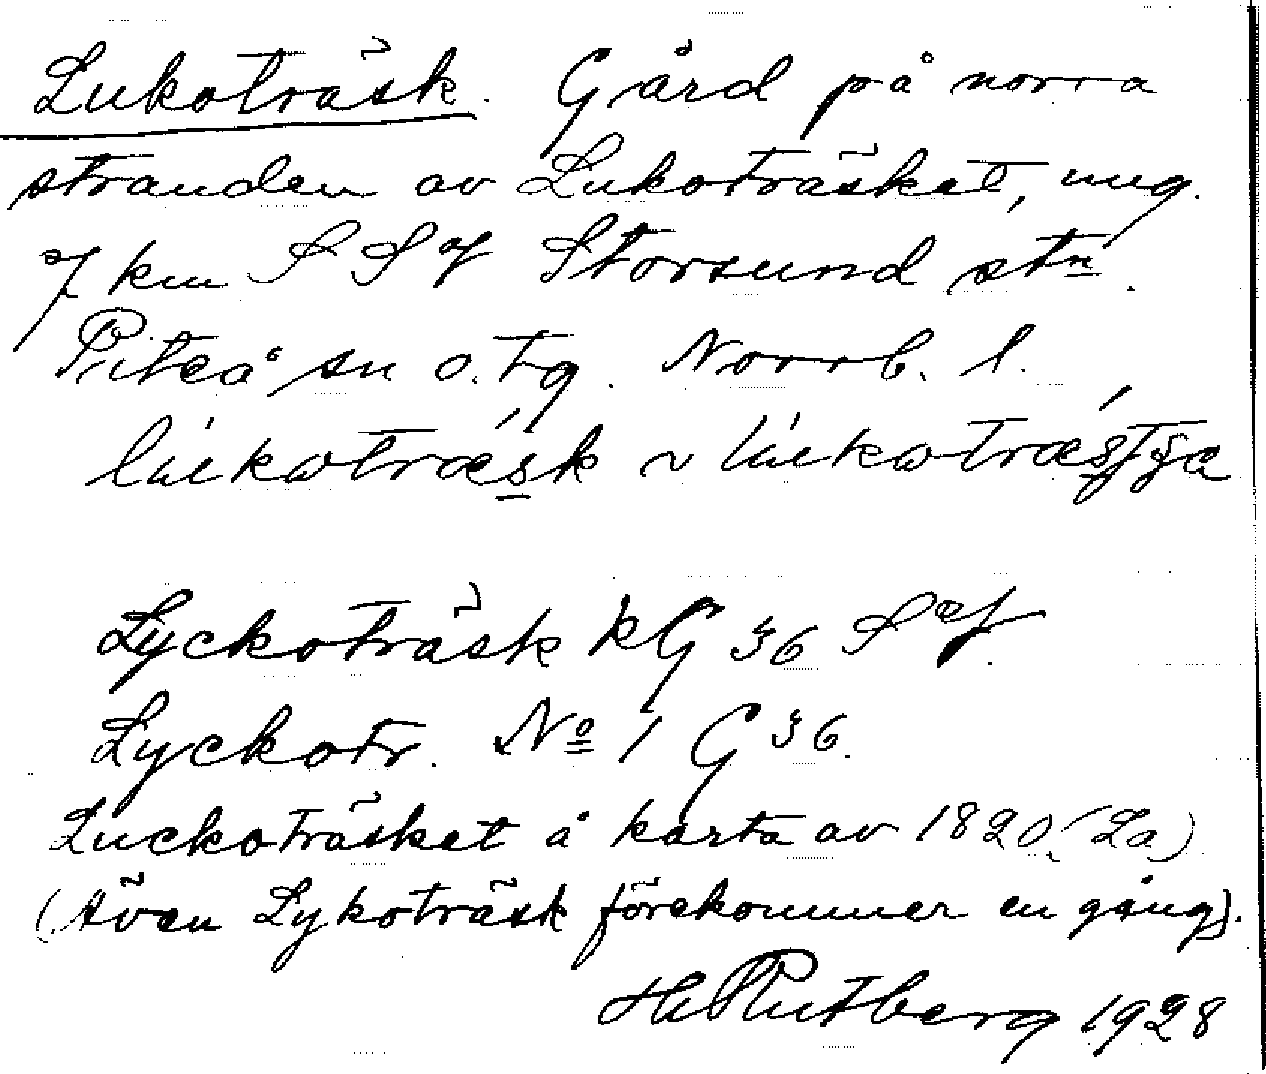 Lukoträsk. Gård på norra
stranden av Lukoträsket, ung.
7 km SSV Storsund stn.
Piteå sn o. tg. Norrb. l.
Lyckoträsk kG 36 SV.
Lyckotr. No 1 G 36.
Luckoträsket å karta av 1820 (La)
(Även Lykoträsk förekommer en gång).
H Rutberg 1928